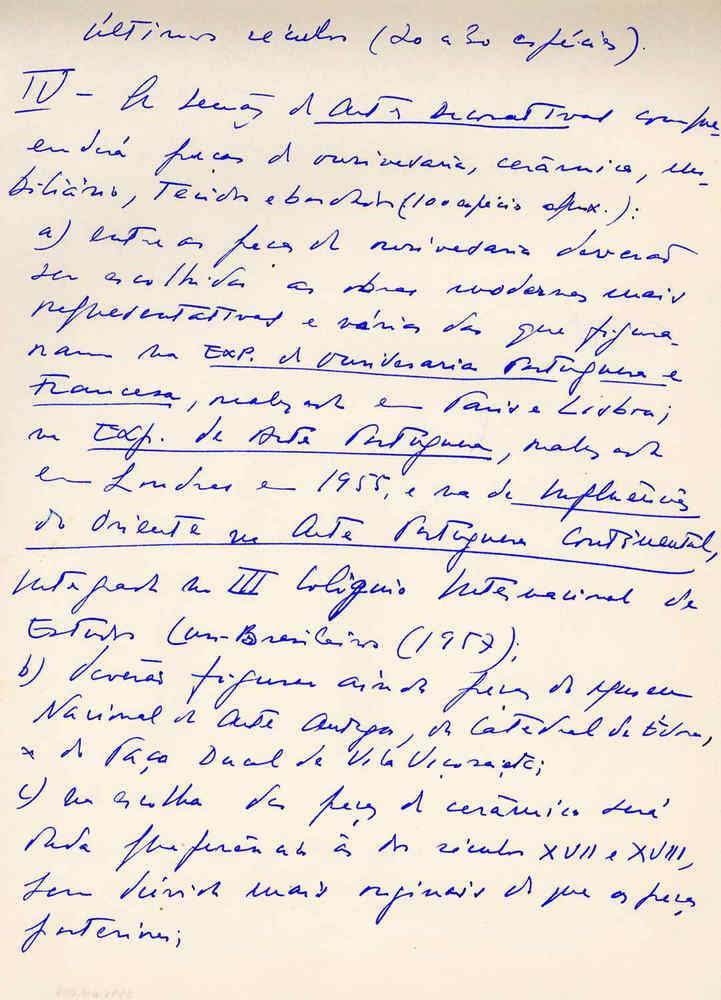 últimos séculos (20 a 30 espécies).
IV - A secção de Artes Decorativas compre-
enderá peças de ourivesaria, cerâmica, mo-
biliário, Tecidos e bordados (100 espécies aprox.):
a) entre as peças de ourivesaria deverão
ser escolhidas as obras modernas mais
representativas e várias das que figura-
ram na Exp. de Ourivesaria Portuguesa e
Francesa, realizada em Paris e Lisboa;
na Exp. de Arte Portuguesa, realizada
em Londres em 1955, e na de Influências
do Oriente na Arte Portuguesa Continental,
integrada no III Colóquio Internacional de
Estudos Luso-Brasileiros (1957);
b) deverão figurar ainda peças do Museu
Nacional de Arte Antiga, da Catedral de Évora,
do Paço Ducal de Vila Viçosa, etc;
c) na escolha das peças de cerâmica será
dada preferência às dos séculos XVII e XVIII,
sem dúvida mais originais do que as peças
posteriores;